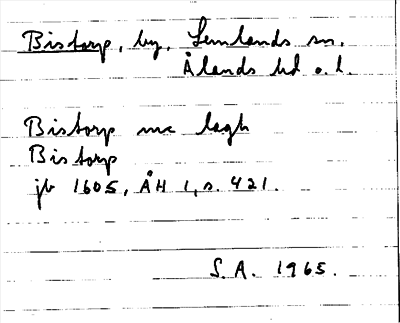 Bistorp, by, Lemlands sn,
Ålands hd o. l.
Bistorp mc lagh
Bistorp
jb 1605, ÅH 1, s. 421.
S. A. 1965.